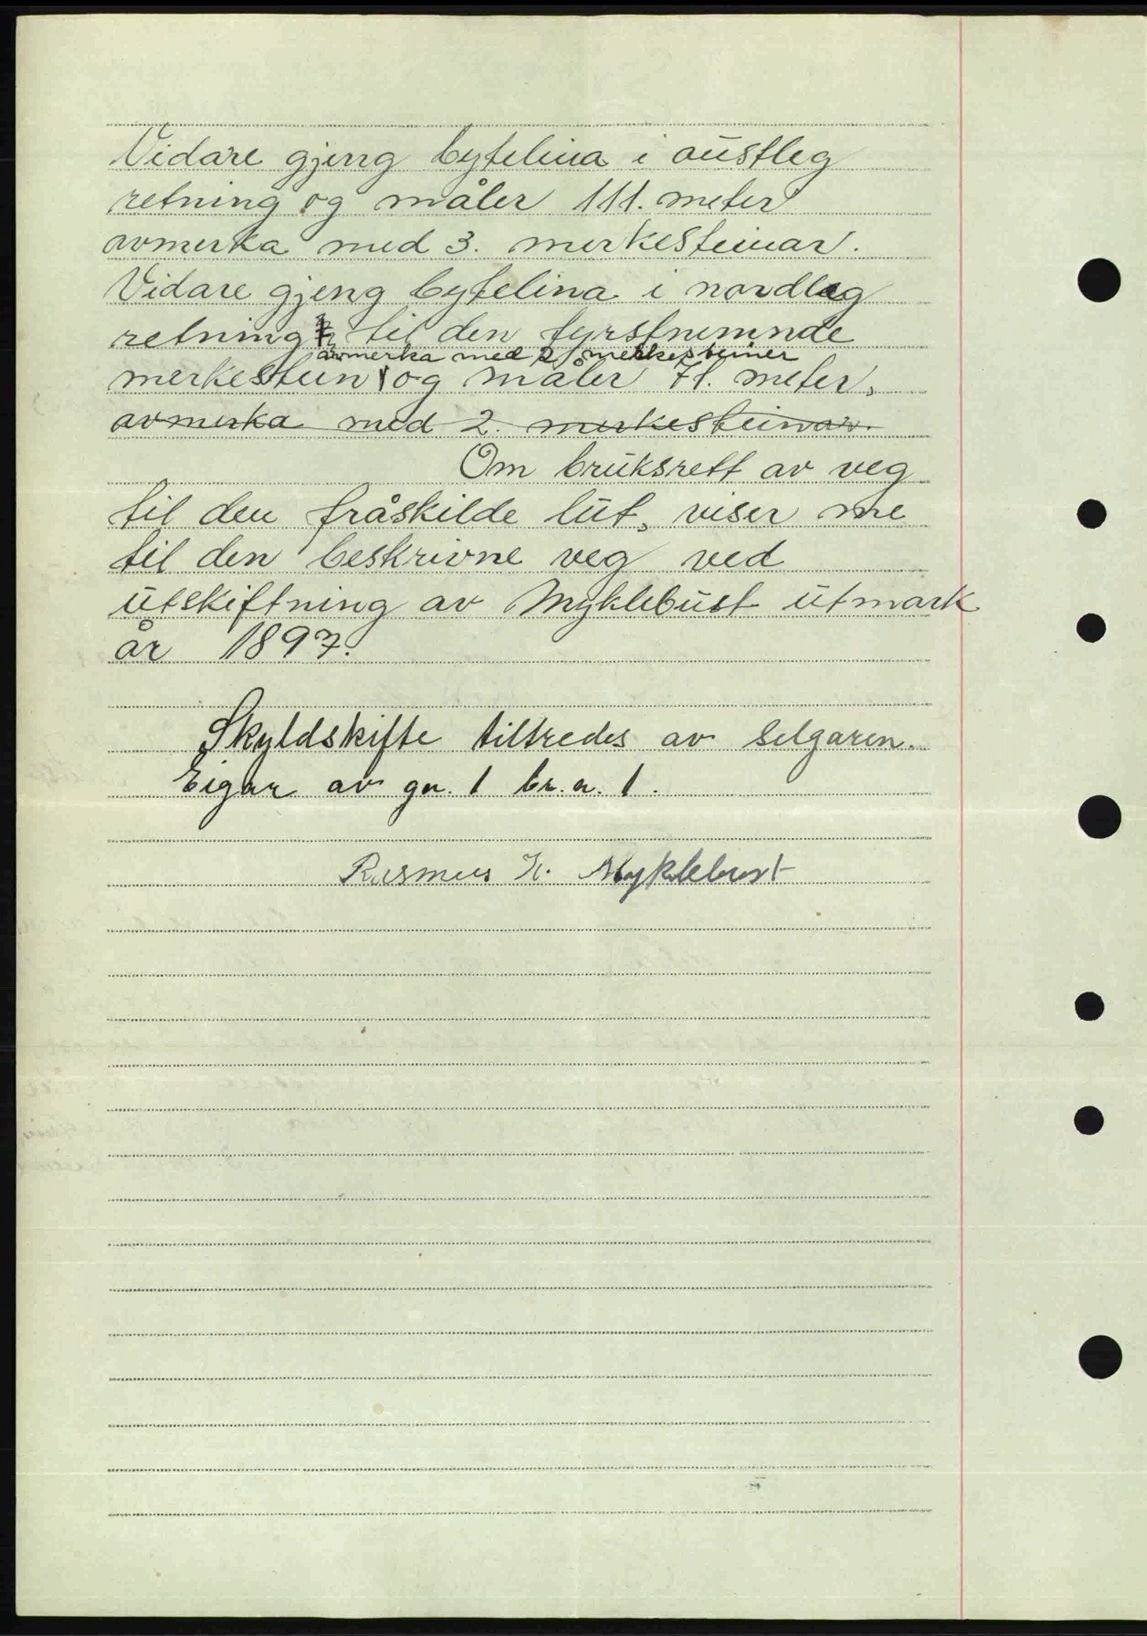 Vidare gjeng bytelina i austleg
retning og måler 111. meter
avmerka med 3. merkesteinar.
Vidare gjeng bytelina i nordleg
retning til den fyrstnemnde
avmerka med 2 merkesteiner
merkestein og måler 71. meter.
avmerka med 2. merkesteinar.
Om bruksrett av veg
til den fråskilde lut, viser me
til den beskrivne veg ved
utskiftning av Myklebust utmark
år 1897.
Skyldskifte tiltredes av selgaren.
Eigar av gn. 1 br.n. 1.
Rasmus K. Myklebust